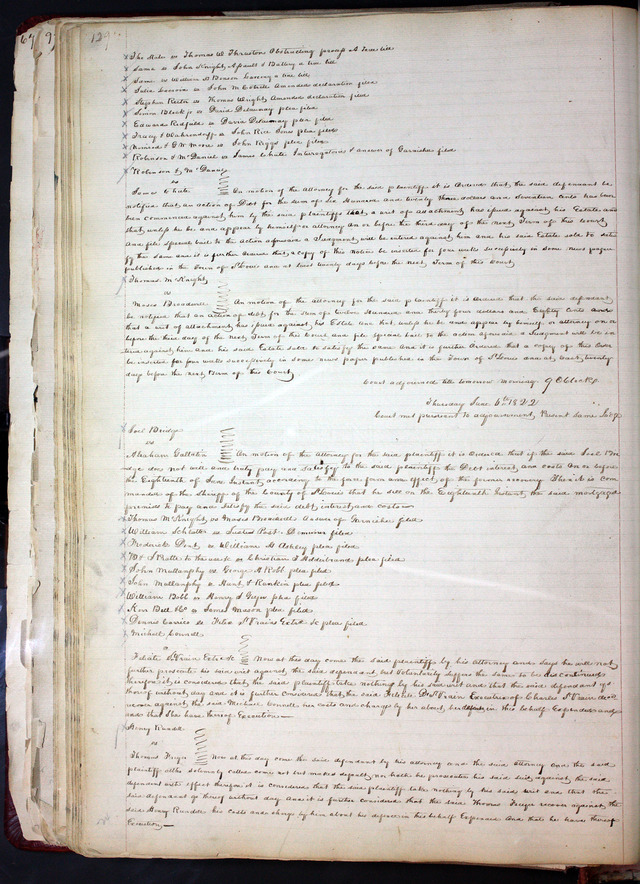 129
The State vs Thomas W Thruston Obstructing process A True bill
Same vs John Knight Assault & Battery a true bill
Same vs William B Benson Larceny a true bill
vs John M Amended declaration filed
Stephen Rector vs Thomas Wright Amended declaration filed
Simon Block vs David Delaunay plea filed
Edward Redfield vs David Delaunay plea filed
Tracy & Wahrendorff vs John Rice Jones plea filed
& GW Moore vs John Riggs plea filed
Robinson & McDaniel vs James White Interogatories & answer of Garnishee filed
Robinson & McDaniel
vs
James White On motion of the attorney for the said plaintiff it is Ordered that the said defendant be
notified that an action of Debt for the sum of Six Hundred and twenty three dollars and Seventeen Cents has been
commenced against him by the said plaintiff that a writ of attachment has issued against his Estate and
that unless he be and appear by himself or attorney on or before the third day of the next Term of this Court
and file Special bail to the action aforesaid a Judgment will be entered against him and his said Estate sold to satis
fy the same and it is further Ordered that a copy of this notice be inserted for four weeks successively in some news paper
published in the Town of St Louis and at least twenty days before the next Term of this Court
Thomas McKnight
vs
Moses Broadwell On motion of the attorney for the said plaintiff it is Ordered that the said defendant
be notified that an action of debt for the Sum of Hundred and thirty four dollars and Eighty Cents and
that a writ of attachment has issued against his Estate and that unless he be and appear by himself or attorney on or
before the third day of the next Term of this Court and file special bail to the action aforesaid a Judgment will be en
tered against him and his said Estate sold to satisfy the same And it is further Ordered that a copy of this Order
be inserted for four weeks successively in some news paper published in the Town of St Louis and at least twenty
days before the next Term of this Court
Court adjourned till tomorrow morning 9 OClock
Thursday June 6th 1822
Court met pursuant to adjournment, Present Same Judge
Joel Bridge
vs
Abraham Gallatin On motion of the attorney for the said plaintiff it is Ordered that if the said Joel Bri
dge does not well and truly pay and Satisfy to the said plaintiff the Debt interest and costs On or before
the Eighteenth of June Instant according to the force form and effect of the former Then it is com
manded of the Sheriff of the County of St Louis that he sell on the Eighteenth Instant the said mortgaged
premises to pay and satisfy the said debt interest and costs
Thomas McKnight vs Moses Broadwell Answer of Garnishee filed
William Schlatter vs Justus Post Demurrer filed
Frederick Dent vs William H Ashley plea filed
to the use vs Christian plea filed
John Mullanphy vs George H Robb plea filed
John Mullanphy vs Hunt & Rankin plea filed
William Bobb vs Henry S Geyer plea filed
Kerr Bell &Co vs James Mason plea filed
Dennis vs Felix St Vrains Extrx &c plea filed
Michael
vs
Felicite StVrain Extrx &c Now at this day come the said plaintiff by his attorney and says he will not
further prosecute his said writ against the said defendant, but Voluntarily suffers the same to be discontinued
therefore it is considered that the said plaintiff take nothing by his said writ and that the said defendant go
thereof without day and it is further considered that the said Felicite StVrain Executrix of Charles StVrain decd
recover against the said Michael her costs and charges by her about her defence in this behalf Expended and
and that She have thereof Execution
Henry Rundle
vs
Thomas Now at this day come the said defendant by his attorney and the said attorney and the said
plaintiff altho solemnly called come not but makes default, nor doth he prosecute his said suit against the said
defendant with effect therefore it is considered that the said plaintiff take nothing by his said writ and that the
said defendant go thereof without day And it is further considered that the said Thomas recover against the
said Henry Rundle his costs and charges by him about his defence in this behalf Expended And that he have thereof
Execution